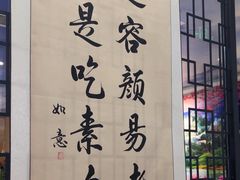 容颜易
是吃素
如意